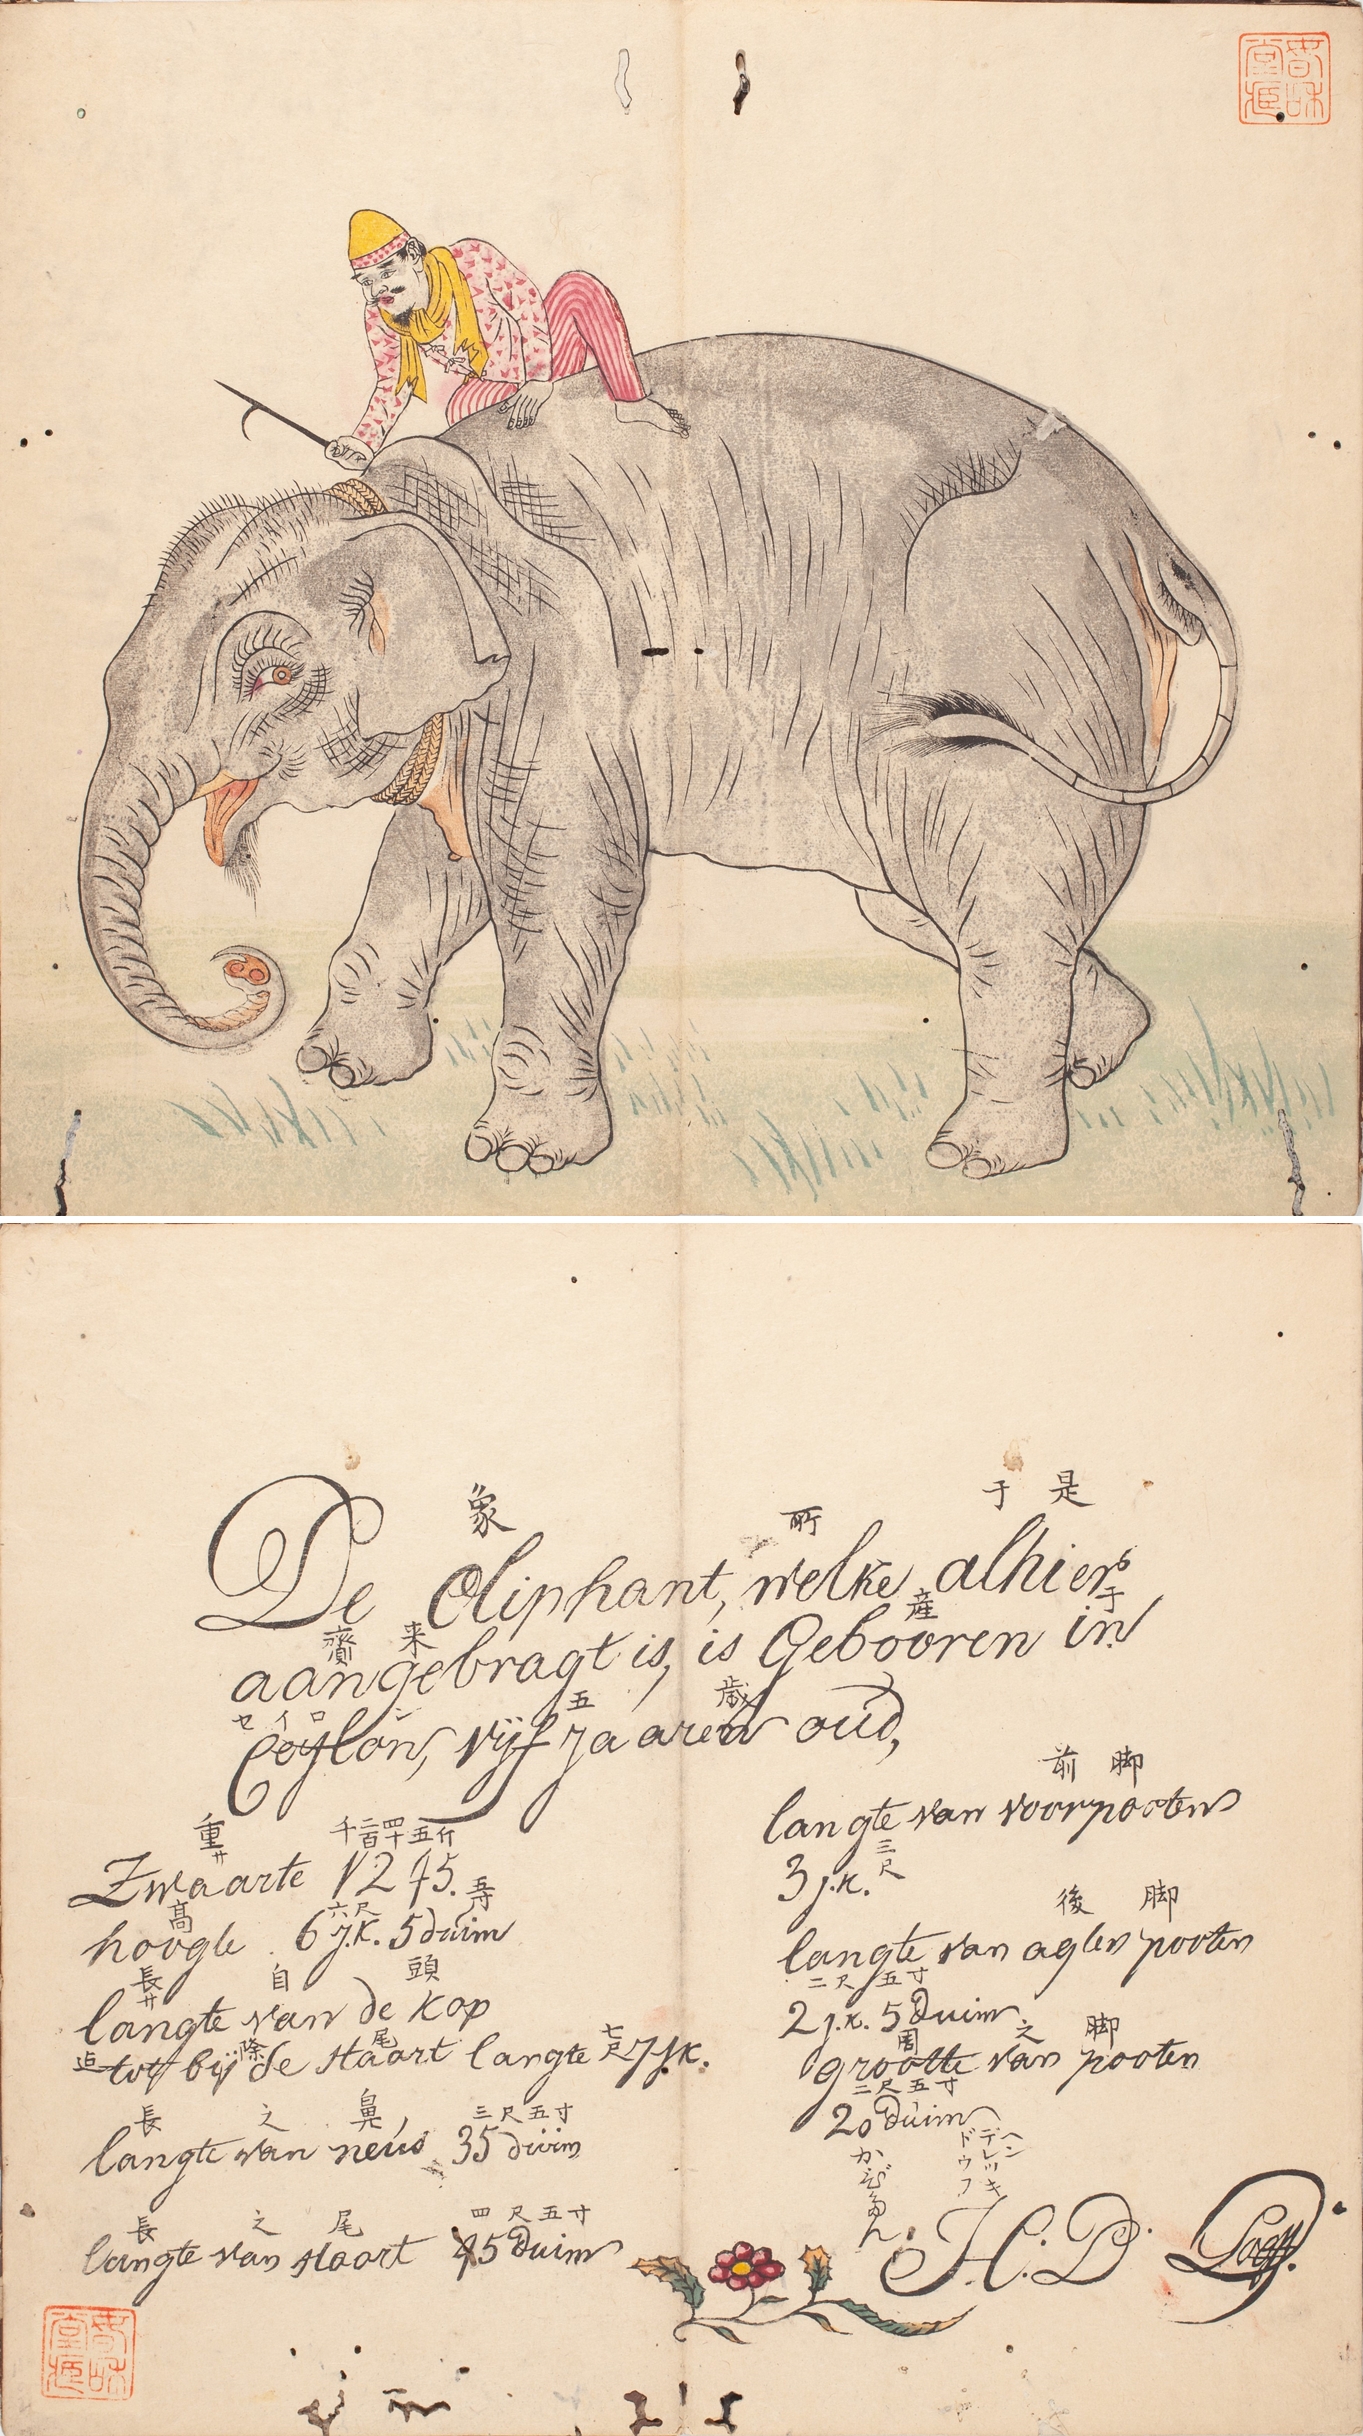 象 所 于 是
De Oliphant, welke alhier
齎 来 産 于
aangebragt is, is Gebooren in
セイロン 五 歳
Ceylon, vijf jaaren oud,
重サ 千二百四十五斤
Zwaarte 1245.
高 六尺 五寸
hoogte 6 j.k. 5 duim
長サ 自 頭
langte van de kop
迠 除 尾 七尺
tot bij de staart langte 7 j.k.
長 之 鼻 三尺五寸
langte van neus 35 duim
長 之 尾 四尺五寸
langte van staart 45 duim
前 脚
langte van voorpooten
三尺
3 j.k.
後 脚
langte van agter pooten
二尺 五寸
2 j.k. 5 duim
周 之 脚
grootte van pooten
二尺五寸
20 duim
ヘンデレッキ
ドウフ
かぴたん
H. D.